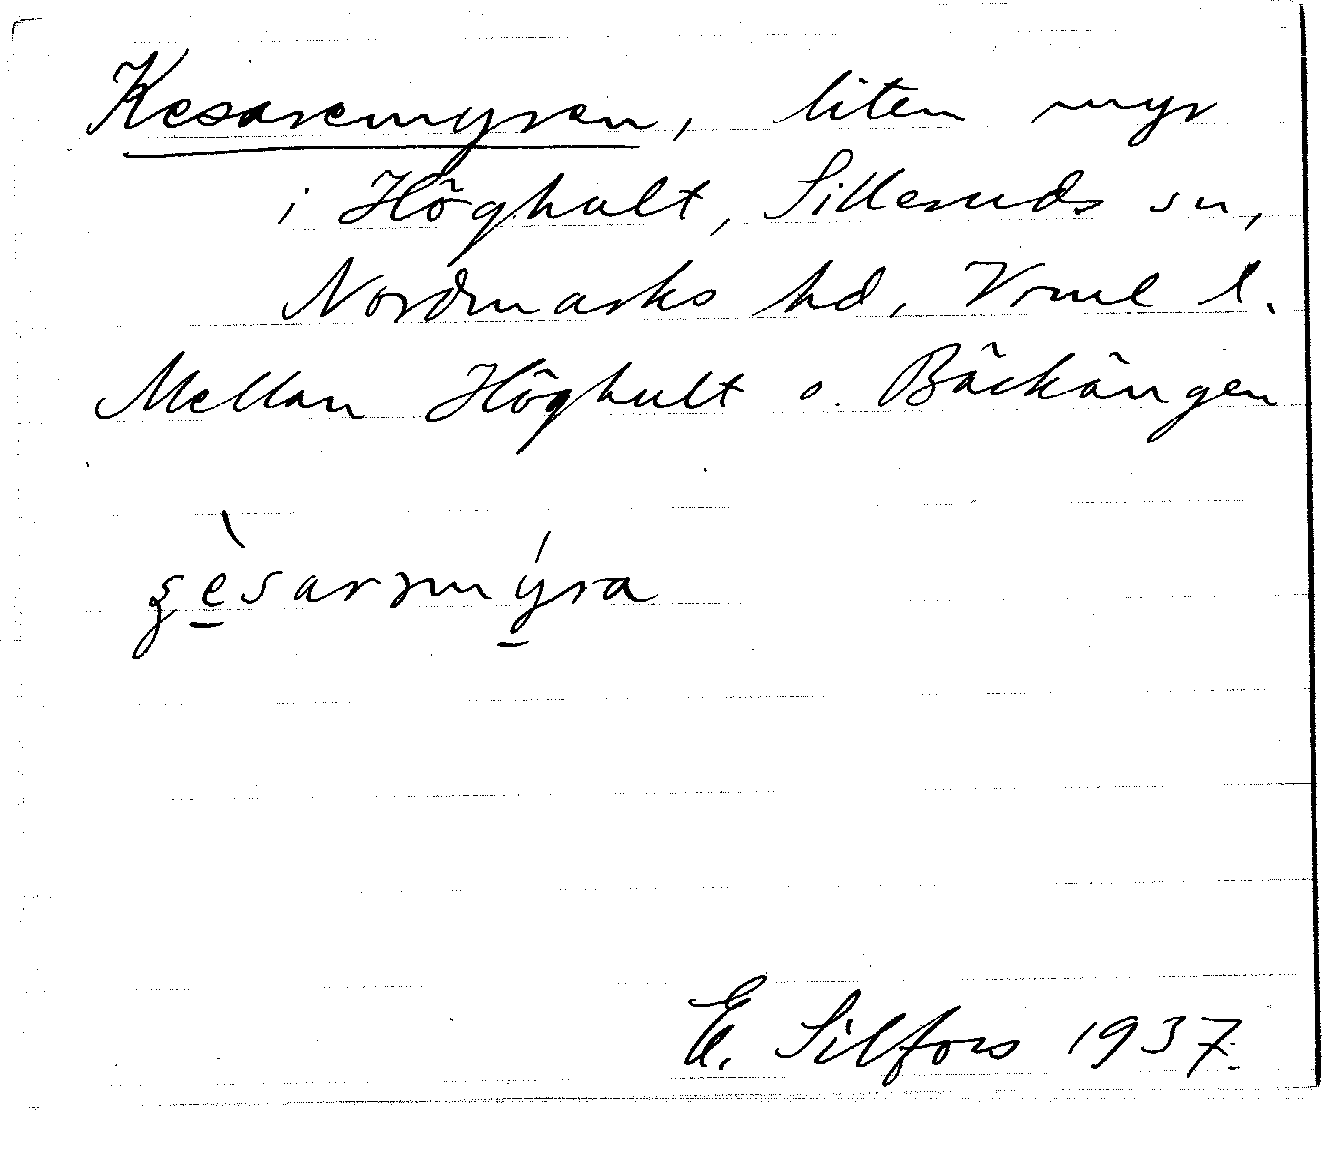 Kesaremyren, liten myr
i Höghult, Silleruds sn,
Nordmarks hd, Vrml l.
Mellan Höghult o. Bäckängen
E. Silfors 1937.